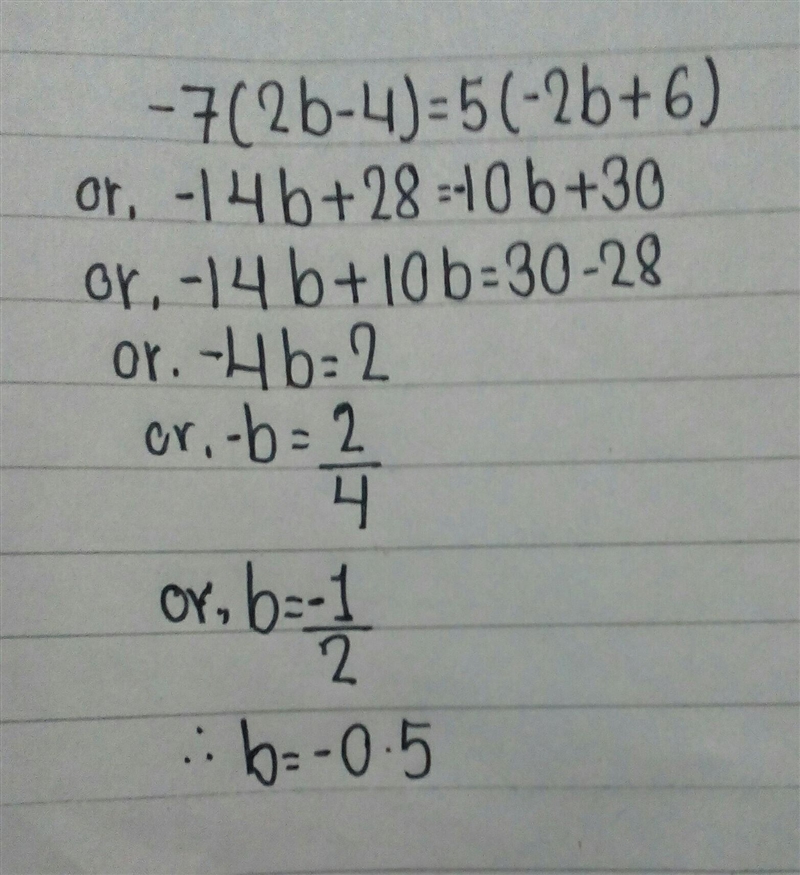 -7(2b-4)=5(-2b+6)
or, -14b+28=-10b+30
or, -14b+10b=30-28
or. -4b=2
or, -b=2/4
or, b=-1/2
∴ b=-0.5